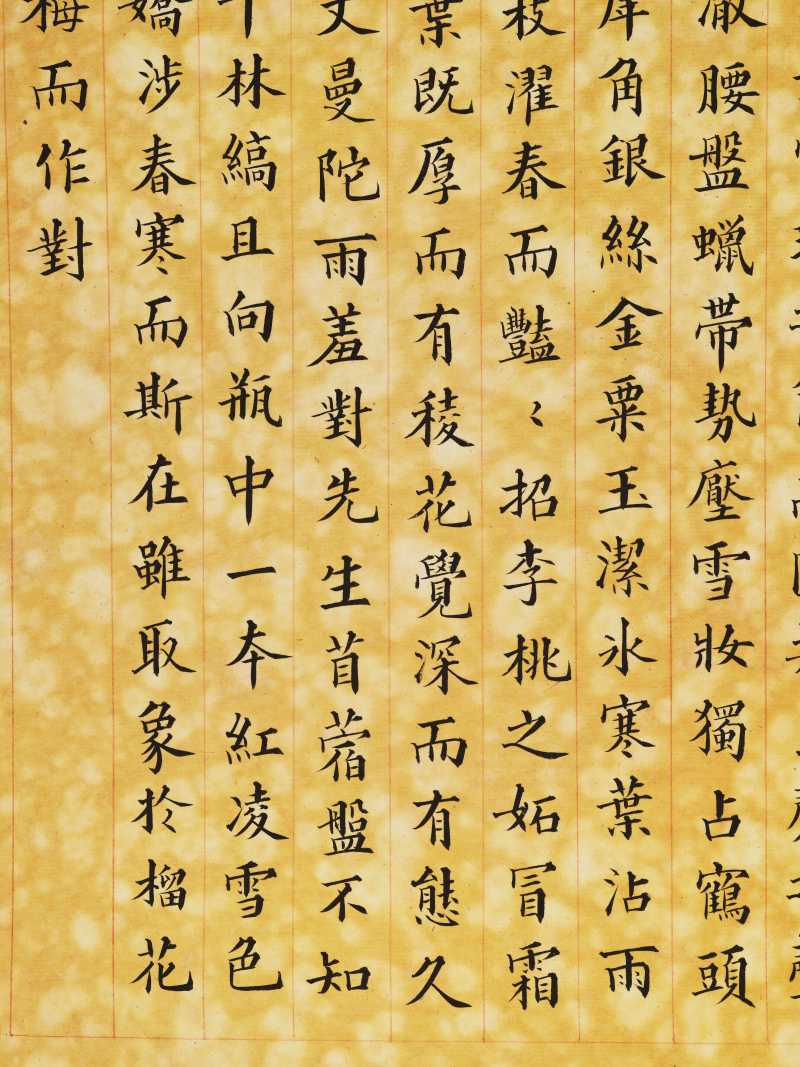 澈腰盤蠟帶勢壓雪妝獨占鶴頭
角銀絲金粟玉潔氷寒葉沾雨
枝濯春而豔〻招李桃之妬冒霜
葉既厚而有稜花覺深而有態久
丈曼陀雨羞對先生苜蓿盤不知
林縞且向瓶中一本紅凌雪色
嬌涉春寒而斯在雖取象於榴花
梅而作對